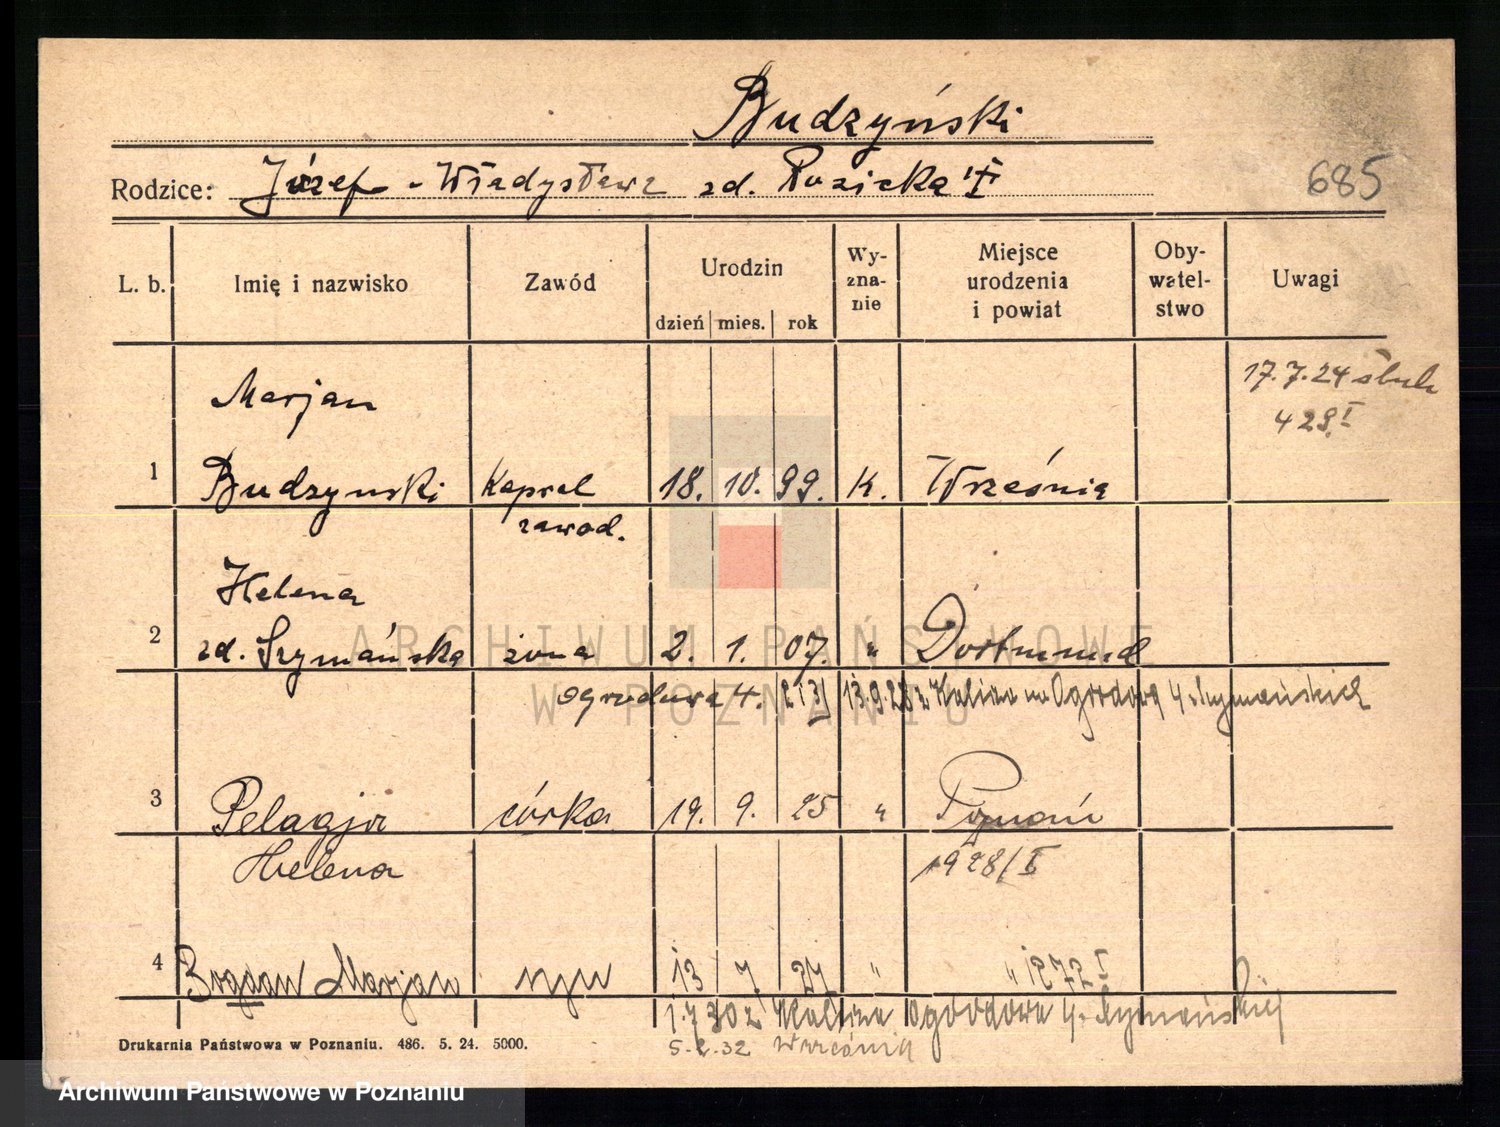 Budzyński
Rodzice: Józef - Władysława zd. Rozicka
685
L. b. Imię i nazwisko Zawód Urodzin dzień mies. rok Wyznanie Miejsce urodzenia i powiat Obywatelstwo Uwagi
17. 7. 24 ślub
429 I
Marjan
1 Budzynski Kapral 18. 10. 99. K. Września
zawod.
Helena
2 zd. Szymańska żona 2. 1. 07. " Dortmund
Ogrodowa 4. 13.9.28 z Kalisza na Ogrodową 4 Szymańskich
3 Pelagja córka 19. 9. 25 " Poznań
Helena 1928/I
4 Bogdan Marjan syn 13 7 27 " " 1272 I
1.7 30 z Kalisza Ogrodowa 4. Szymańskiej
5.2.32 Września
Drukarnia Państwowa w Poznaniu. 486. 5. 24. 5000.
ARCHIWUM PAŃSTWOWE
W POZNANIU
Archiwum Państwowe w Poznaniu